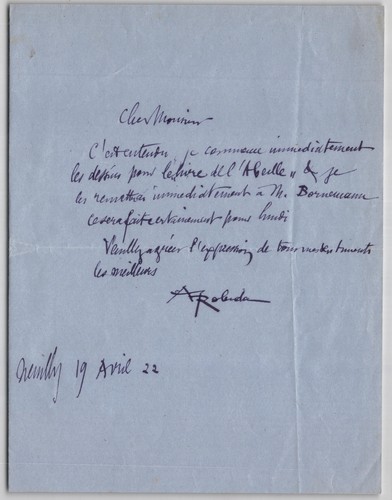 Cher Monsieur
C'est entendu, je commence immédiatement
les dessins pour le livre de l'Abeille" & je
les remettrai immédiatement à M. Bornemann
ce sera fait certainement pour lundi
Veuillez agréer l'expression de tous mes sentiments
les meilleurs
A Robida
Neuilly 19 Avril 22